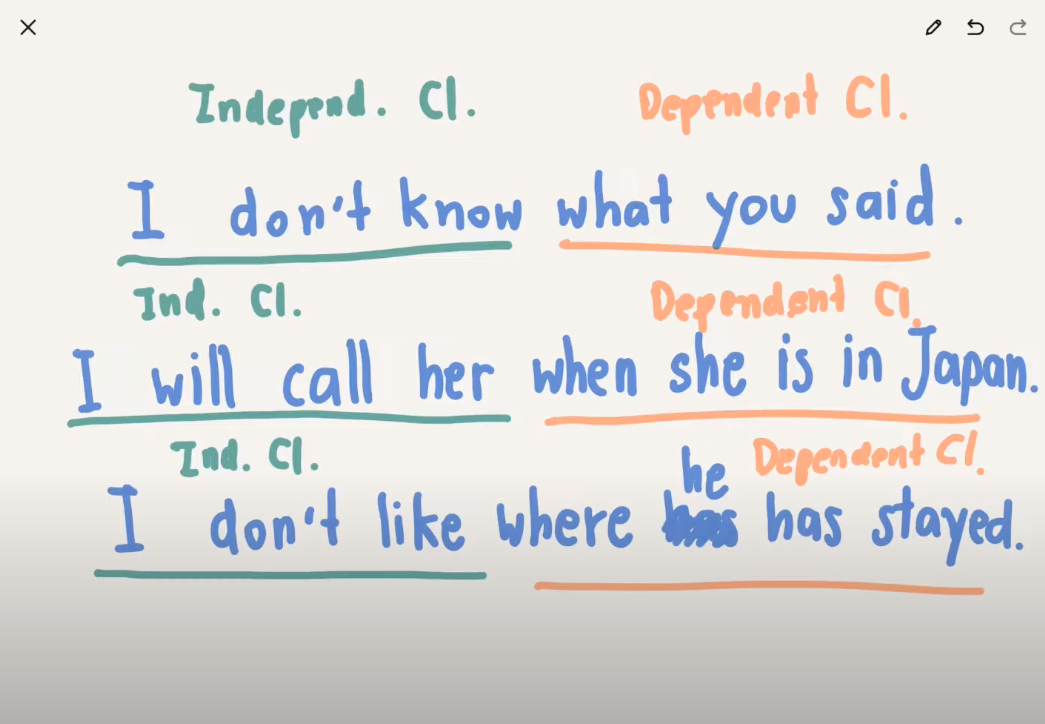 Independ. Cl. Dependent Cl.
I don't know what you said.
Ind. Cl. Dependent Cl.
I will call her when she is in Japan.
Ind. Cl. Dependent Cl.
he
I don't like where has stayed.